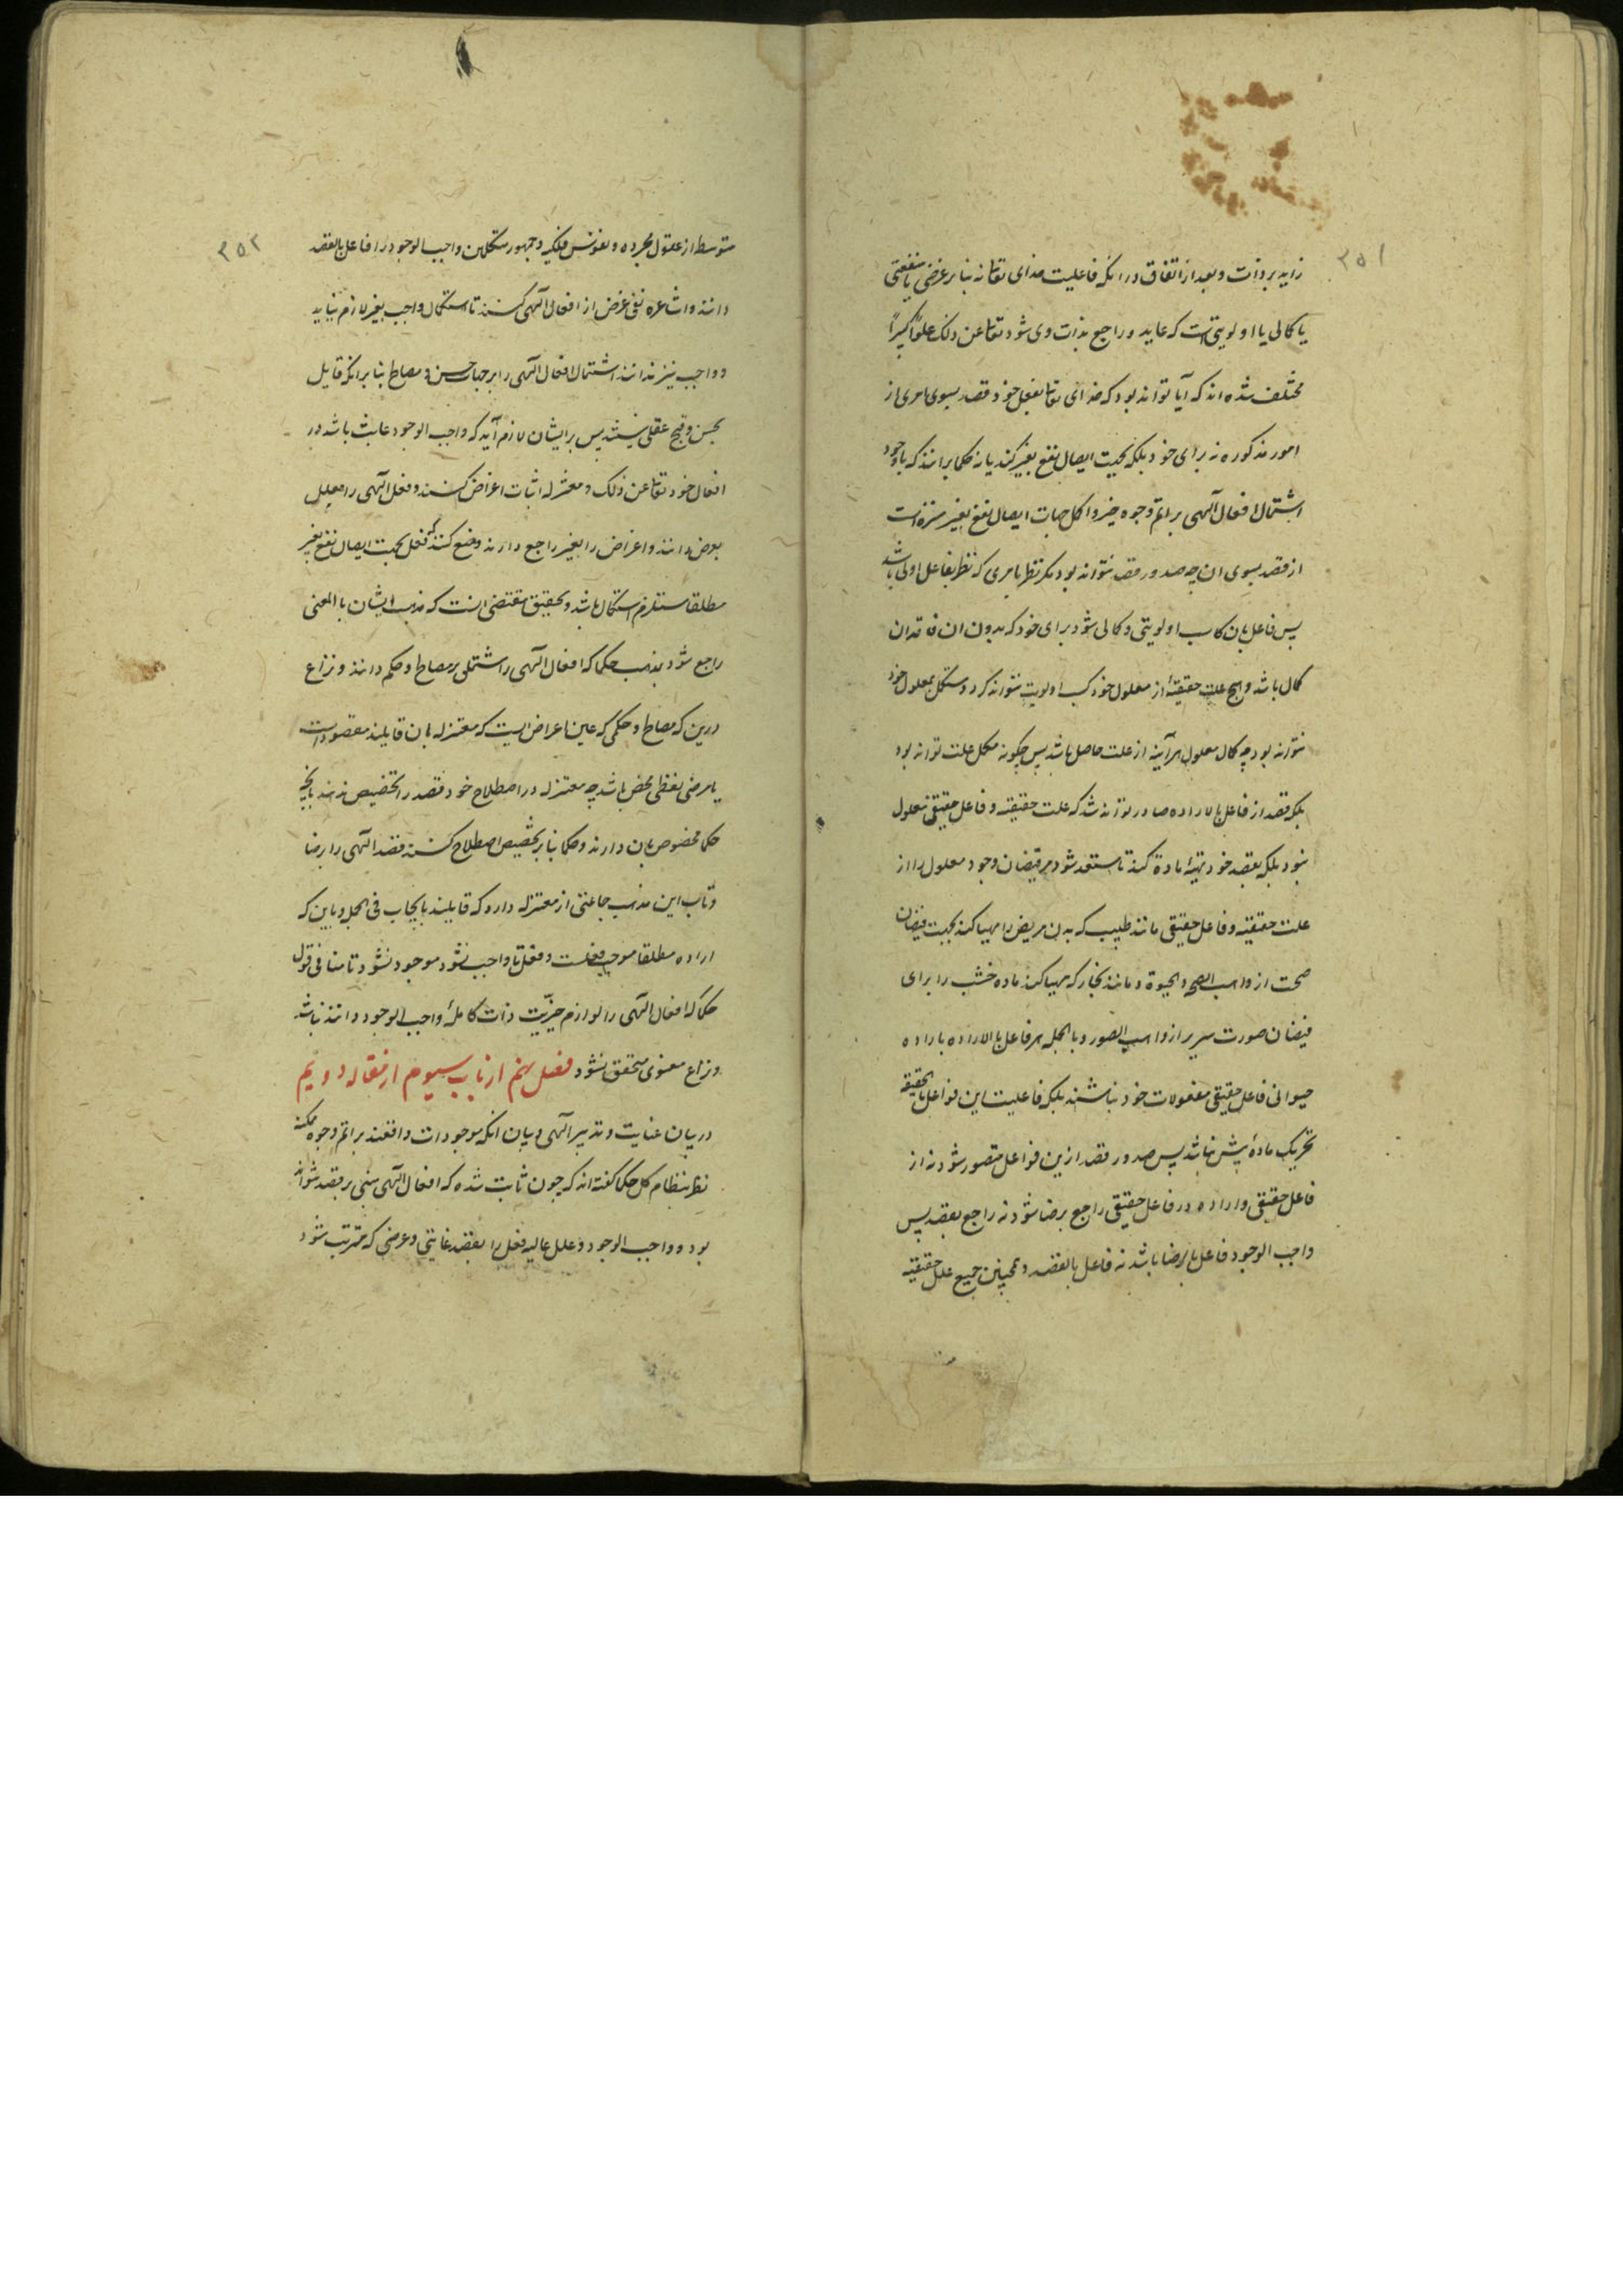 ۳۵۱
زاید بر ذات و بعد از اتفاق در انکه فاعلیت خدای تعالی نه بنا بر غرضی یا منفعتی
یا کمالی یا اولویتی است که عاید و راجع بذات وی شود تعالی عن ذلک علوّاً کبیراً
مختلف شده اند که آیا تواند بود که خدای تعالی بفعل خود قصد بسوی امری از
امور مذکوره نه برای خود بلکه بجهت ایصال نفع بغیر کند یا نه حکما برانند که با وجود
اشتمال افعال آلهی بر اتم وجوه خیر و اکمل جهات ایصال نفع بغیر منزه است
از قصد بسوی ان چه صدور قصد نتواند بود مکر نظر بامری که نظر بفاعل اولی باشد
پس فاعل بان کاسب اولویتی و کمالی شود برای خود که بدون ان فاقد ان
کمال باشد و هیچ علت حقیقیهٔ از معلول خود کسب اولویت نتواند کرد و مستکمل بمعلول خود
نتواند بود چه کمال معلول هرآینه از علت حاصل باشد پس چکونه مکمل علت تواند بود
بلکه قصد از فاعل بالاراده صادر تواند شد که علت حقیقیه و فاعل حقیقی معلول
نبود بلکه بقصد خود تهیهٔ مادة کند تا مستعد شود مر فیضان وجود معلول را از
علت حقیقیه و فاعل حقیقی مانند طبیب که بدن مریض را مهیا کند بجهت فیضان
صحت از واهب الصحة و الحیوة و مانند نجار که مهیا کند ماده خشب را برای
فیضان صورت سریر از واهب الصور و بالجمله هر فاعل بالاراده باراده
حیوانی فاعل حقیقی مفعولات خود نباشند بلکه فاعلیت این فواعل بالحقیقه
تحریک مادهٔ بیش نباشد پس صدور قصد ازین فواعل متصور شود نه از
فاعل حقیقی و اراده در فاعل حقیقی راجع برضا شود نه راجع بقصد پس
واجب الوجود فاعل بالرضا باشد نه فاعل بالقصد و همچنین جمیع علل حقیقیه
۳۵۲
متوسط از عقول مجرده و نفوس فلکیه و جمهور متکلمین واجب الوجود را فاعل بالقصد
دانند و اشاعره نفی غرض از افعال آلهی کنند تا استکمال واجب بغیر لازم نیاید
و واجب نیز ندانند اشتمال افعال آلهی را بر جهات حسن و مصالح بنا بر انکه قایل
بحسن و قبح عقلی نیستند پس بر ایشان لازم آید که واجب الوجود عابث باشد در
افعال خود تعالی عن ذلک و معتزله اثبات اعراض کنند و فعل آلهی را معلل
بغرض دانند و اغراض را بغیر راجع دارند و منع کنند که فعل بجهت ایصال نفع بغیر
مطلقا مستلزم استکمال باشد و تحقیق مقتضی انست که مذهب ایشان بالمعنی
راجع شود بمذهب حکما که افعال آلهی را مشتمل بر مصالح و حکم دانند و نزاع
درین که مصالح و حکمی که عین اغراضیست که معتزله بان قایلند مقصود است
یا مرضی لفظی محض باشد چه معتزله در اصطلاح خود قصد را تخصیص ندهند بانچه
حکما مخصوص بان دارند و حکما بنا بر تخصیص اصطلاح کنند قصد آلهی را برضا
و تاب این مذهب جماعتی از معتزله دارد که قایلند بایجاب فی الجمله و باین که
اراده مطلقا موجب فعلست و فعل تا واجب نشود موجود نشود تا منافی قول
حکما که افعال آلهی را لوازم خیریّت ذات کاملهٔ واجب الوجود دانند نباشد
و نزاع معنوی متحقق نشود فصل نهم از باب سیوم از مقاله دویم
در بیان عنایت و تدبیر آلهی و بیان انکه موجودات واقعند بر اتم وجوه ممکنه
نظر بنظام کل حکما کفته اند که چون ثابت شده که افعال آلهی مبنی بر قصد نتواند
بود و واجب الوجود و علل عالیه فعل را بقصد غایتی و غرضی که مترتب شود